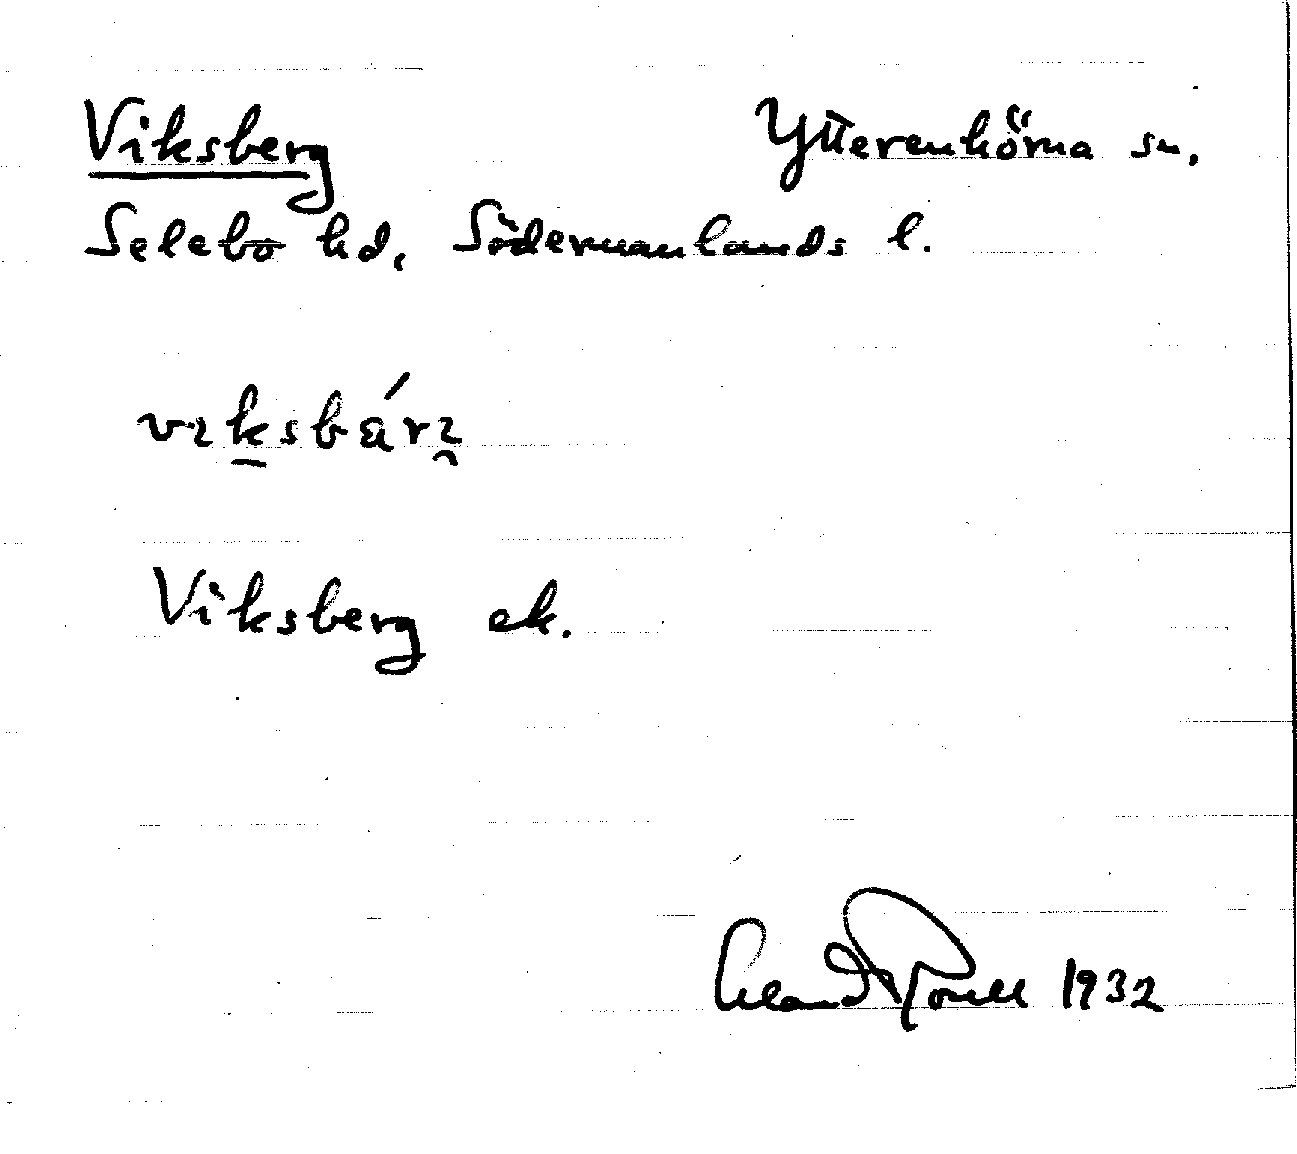 Viksberg Ytterenhörna sn.
Selebo hd, Södermanlands l.
vıksbárı
Viksberg ek.
1932